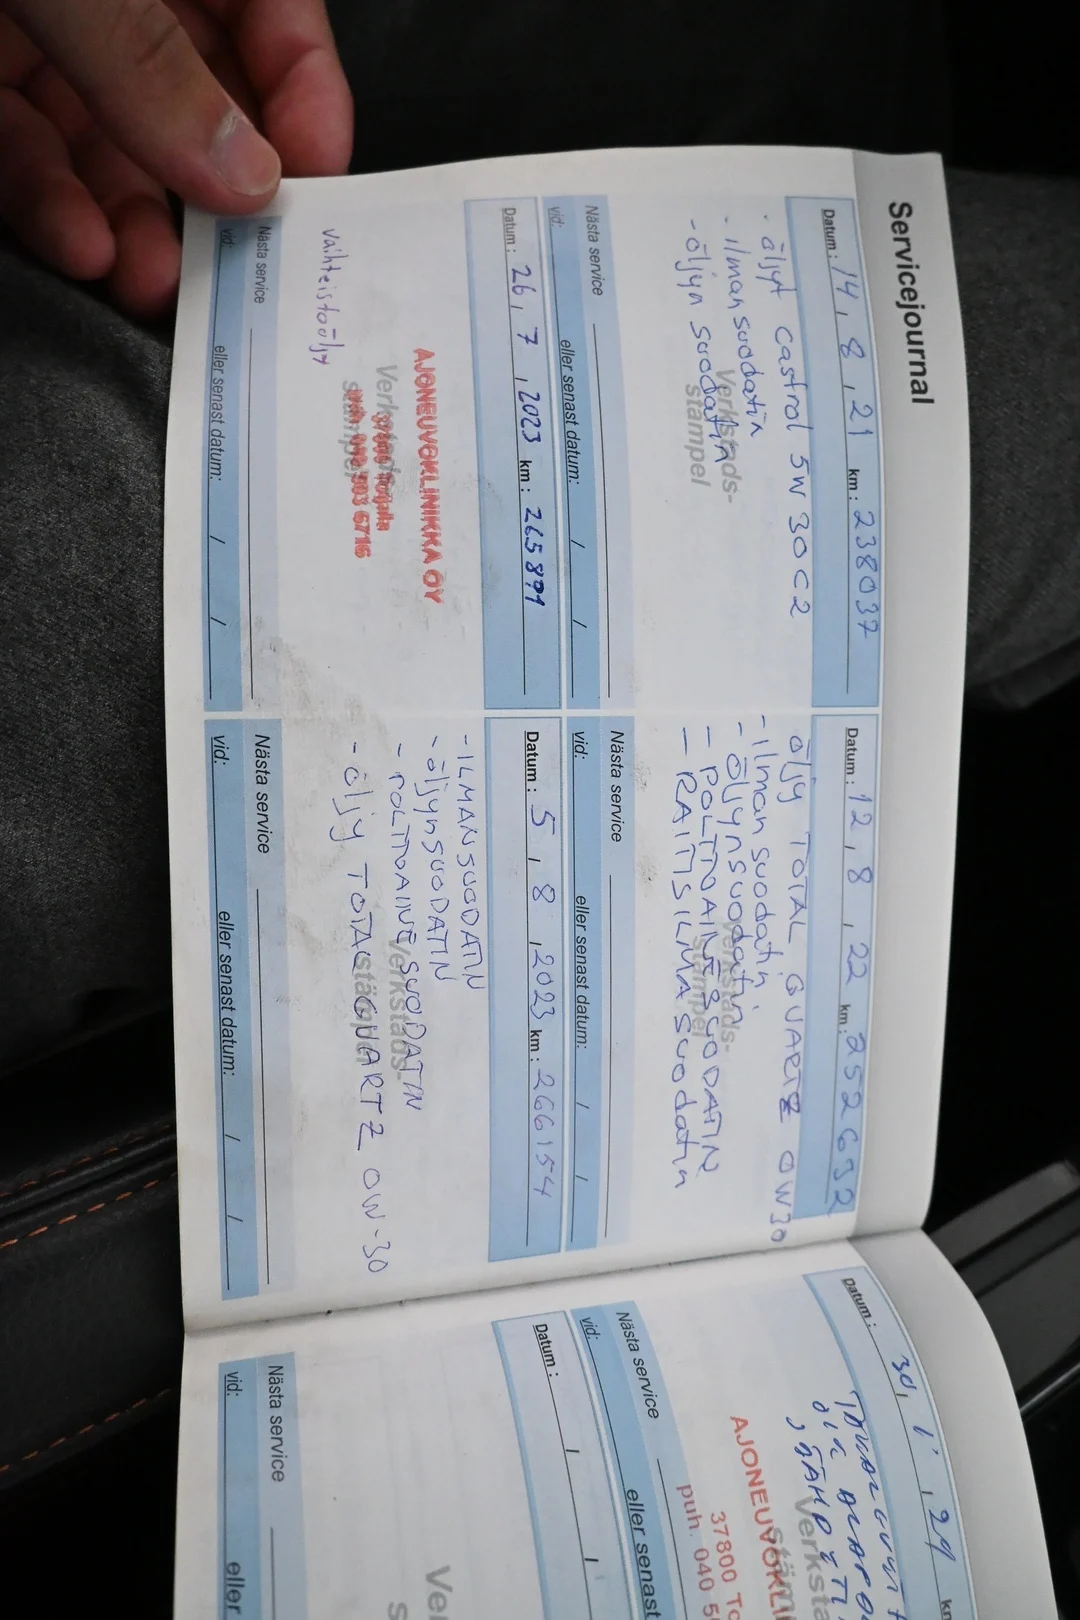 Servicejournal
Datum: 14, 8, 21 km: 238037
- öljyt castrol 5W 30 C2
- ilmansuodatin
- öljyn suodatin
Verkstads-
stämpel
Nästa service
vid: eller senast datum: / /
Datum: 12, 8, 22 km: 252632
öljy TOTAL QUARTZ 0W30
- ilmansuodatin
- öljynsuodatin
- POLTTOAINESUODATIN
- RAITISILMASuodatin
Verkstads-
stämpel
Nästa service
vid: eller senast datum: / /
Datum: 26, 7, 2023 km: 265891
AJONEUVOKLINIKKA OY
Verkstads-
vaihteistoöljy
Nästa service
vid: eller senast datum: / /
Datum: 5, 8, 2023 km: 266154
- ILMANSUODATIN
- öljynSUODATIN
- POLTTOAINESUODATIN
- öljy TOTAL QUARTZ 0W-30
Verkstads-
stämpel
Nästa service
vid: eller senast datum: / /
Datum: 30, 1, 24 km
Verksta
stäm
AJONEUVOKLI
37800 To
puh. 040 5
Nästa service
vid: eller senast
Datum: / /
Ve
s
Nästa service
vid: eller